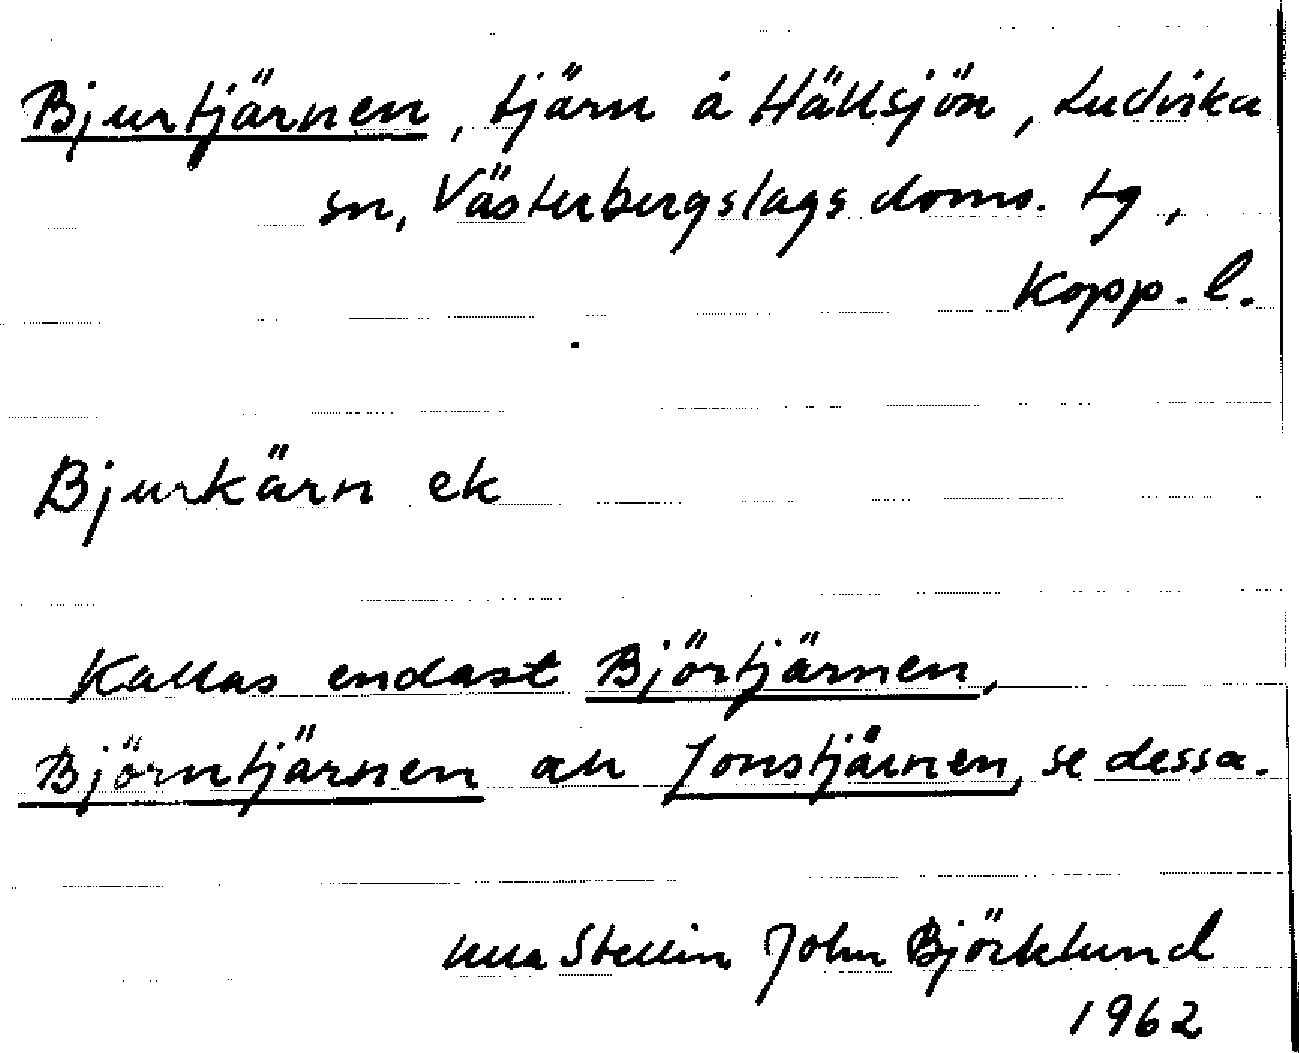 Bjurtjärnen, tjärn å Hällsjön, Ludvika
sn, Västerbergslags doms. tg,
Kopp. l.
Bjurkärn ek
Kallas endast Björtjärnen,
Björntjärnen ell Jonstjärnen, se dessa.
Ulla Stellin John Björklund
1962